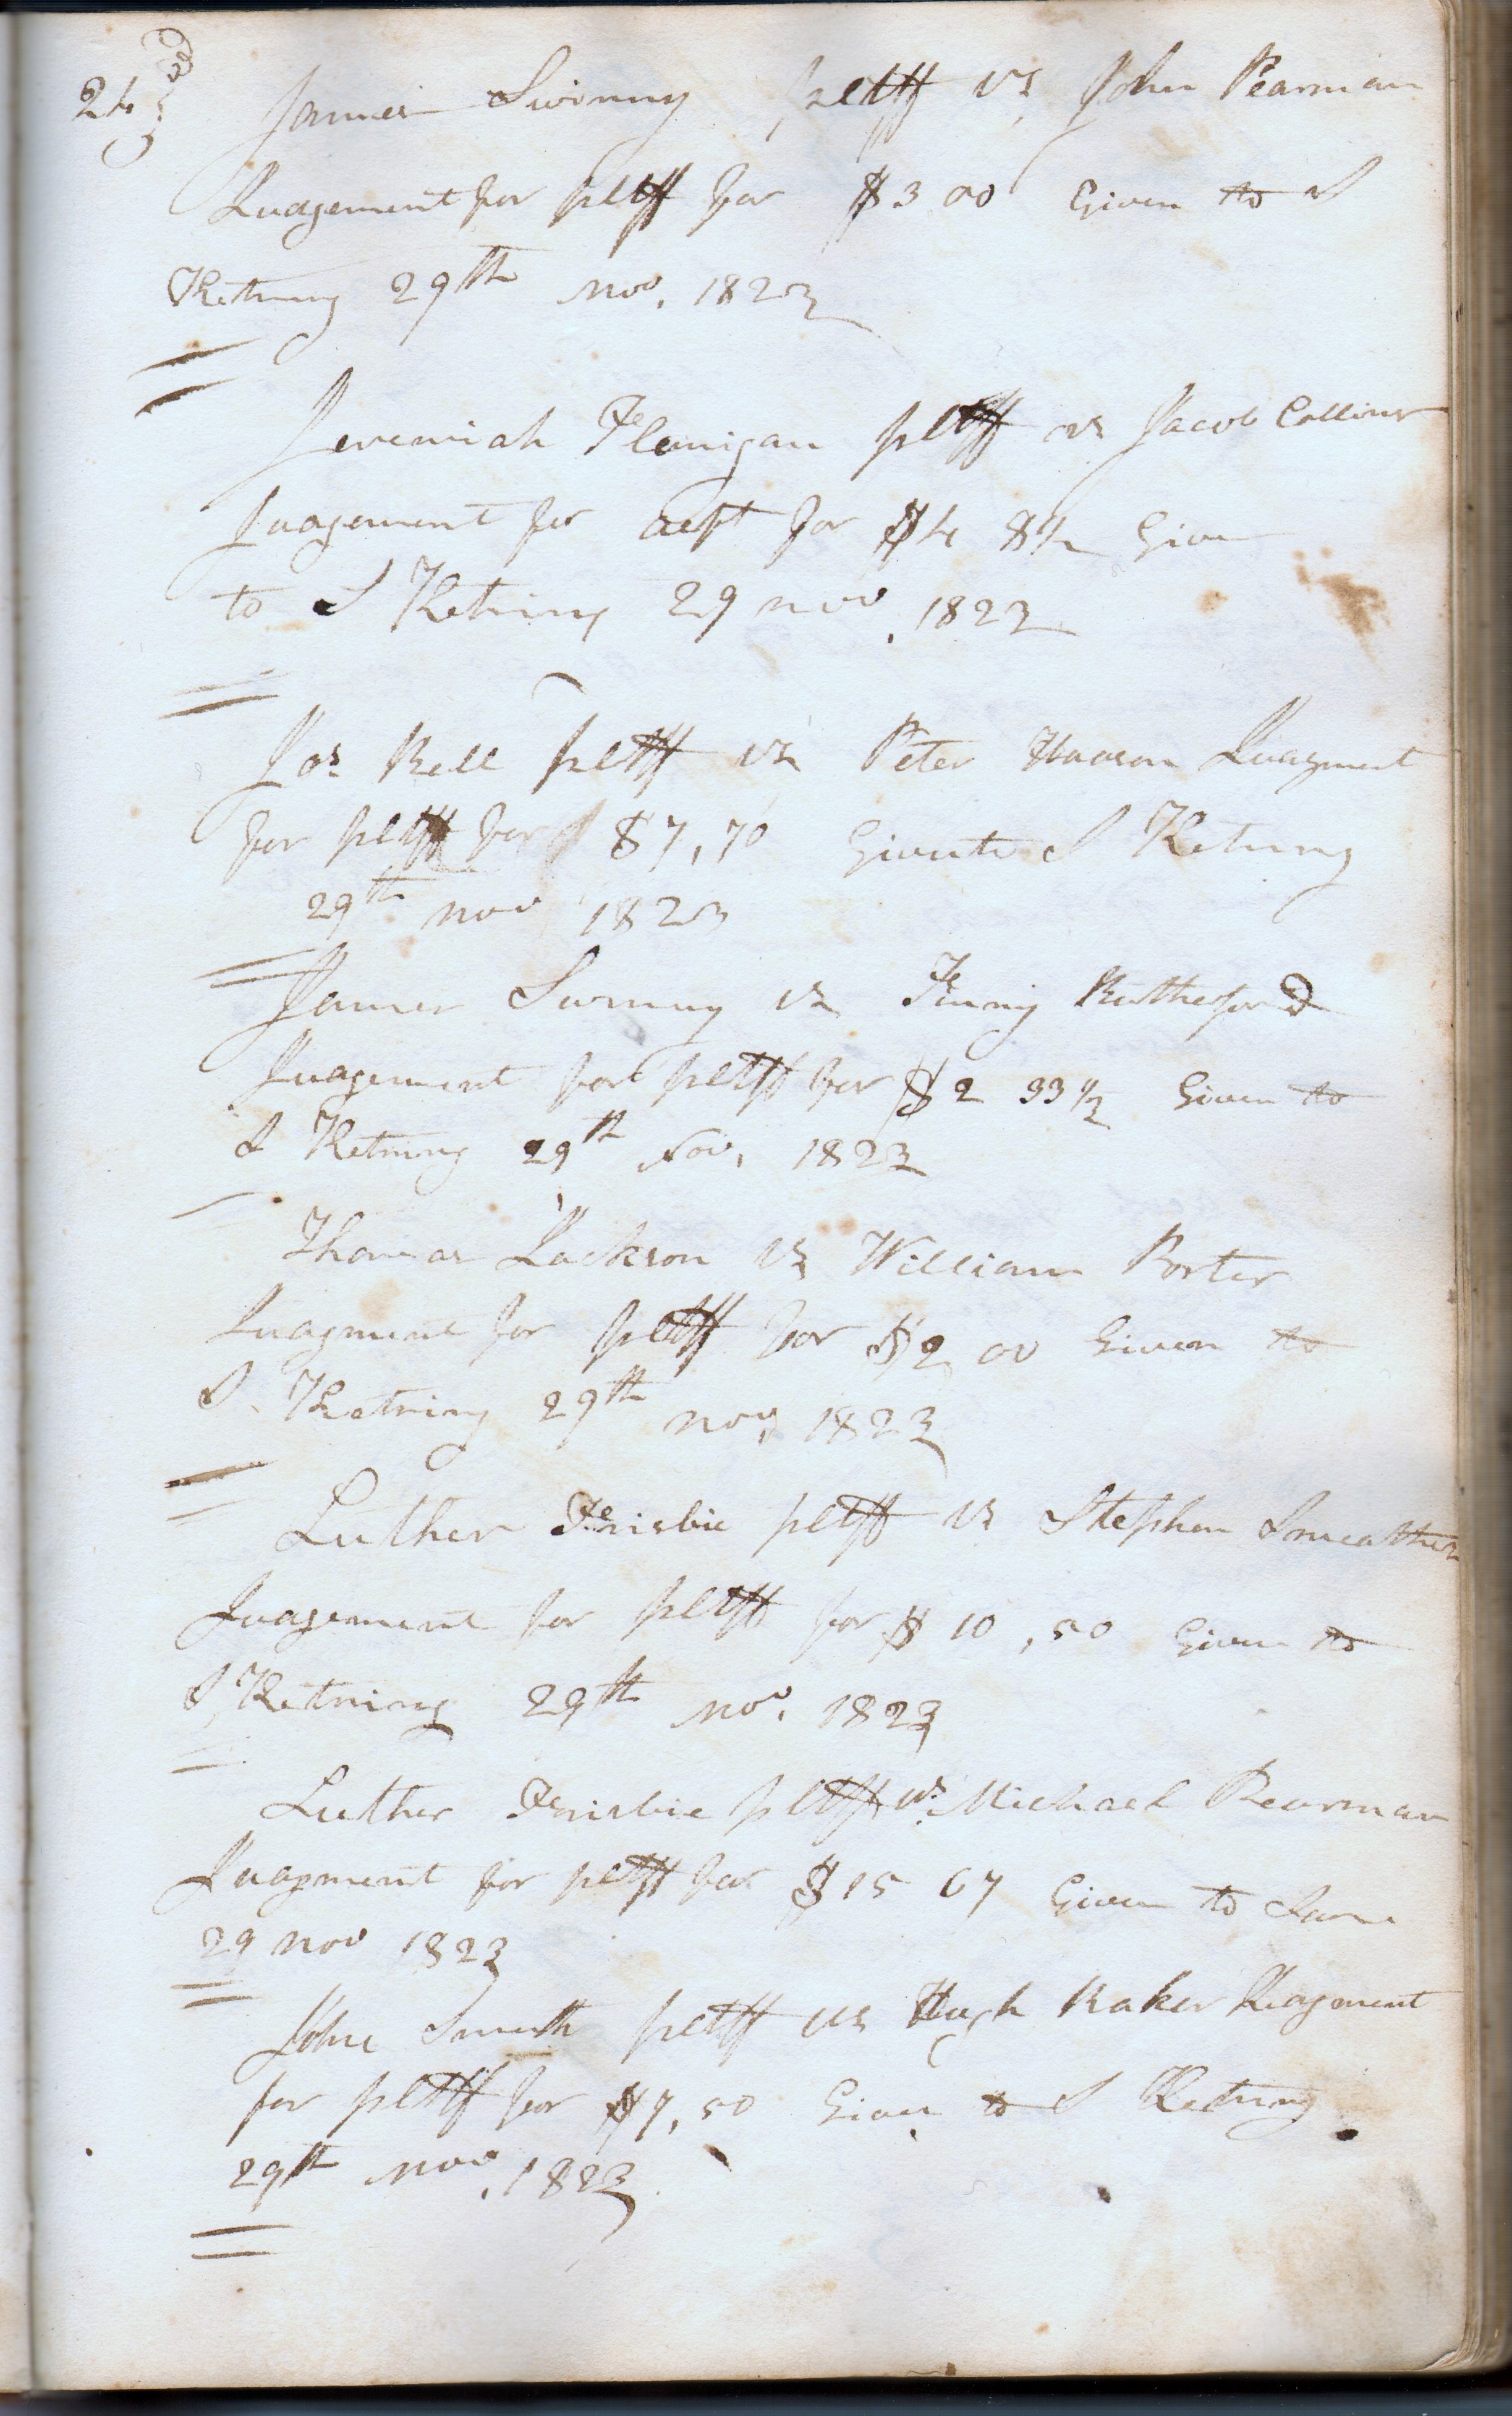 24
James Swinny pltff vs John Pearman
Judgement for pltff for $3 00 Given to S
Ketring 29th Nov. 1823
Jeremiah Flanigan pltff vs Jacob Collins
Judgement for deft for $4 84 Given
to S Ketring 29 nov. 1823
Jos. Bell pltff vs Peter Judgment
for pltff for $7,70 Given to S Ketring
29th nov 1823
James Swinny vs Rutherford
Judgement for pltff for $2 33 1/2 Given to
S Ketring 29th Nov. 1823
Thomas Jackson vs William Porter
Judgment for pltff for $2 00 Given to
S. Ketring 29th nov 1823
Luther Frisbie pltff vs Stephen Smeather
Judgement for pltff for $10,50 Given to
S Ketring 29th Nov. 1823
Luther Frisbie pltff vs Michael Pearman
Judgment for pltff for $15 67 Given to Same
29 Nov 1823
John Smith pltff vs Hugh Baker Judgment
for pltff for $7,50 Given to S Ketring
29th Nov. 1823